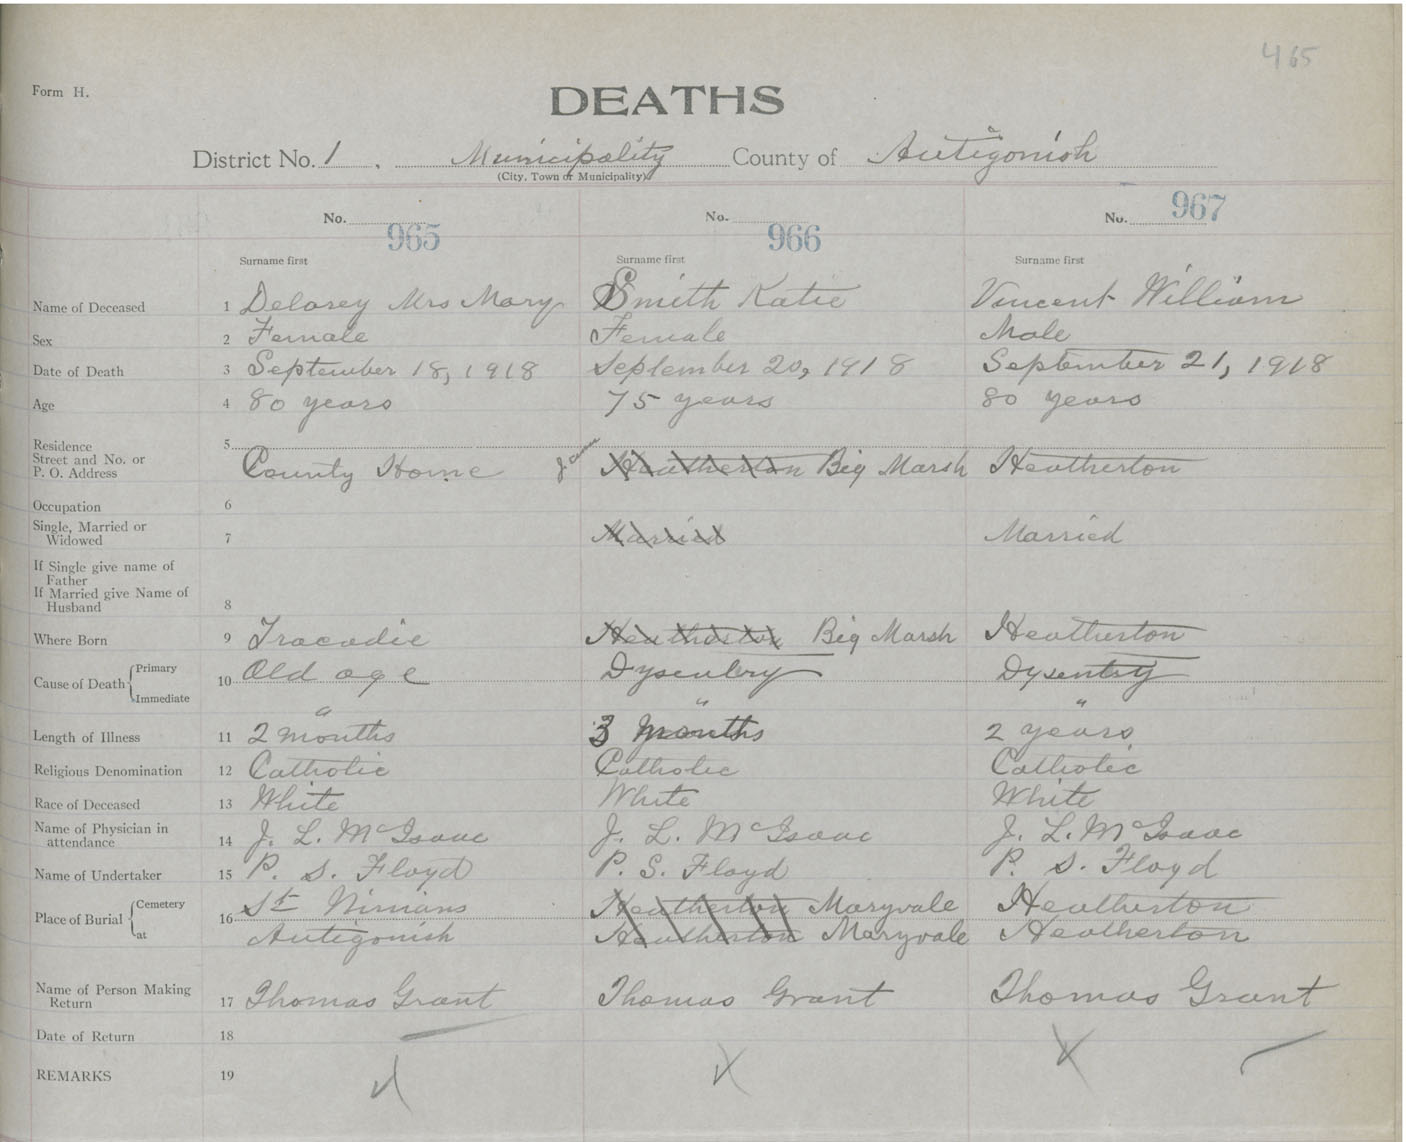 465
Form H.
DEATHS
District No. 1. Municipality County of Antigonish
(City, Town or Municipality)
No. 965 No. 966 No. 967
Surname first Surname first Surname first
Name of Deceased 1 Delorey Mrs Mary Smith Katie Vincent William
Sex 2 Female Female Male
Date of Death 3 September 18, 1918 September 20, 1918 September 21, 1918
Age 4 80 years 75 years 80 years
Residence 5
Street and No. or
P. O. Address County Home Heatherton Big Marsh Heatherton
Occupation 6
Single, Married or
Widowed 7 Married Married
If Single give name of
Father
If Married give Name of
Husband 8
Where Born 9 Tracadie Heatherton Big Marsh Heatherton
Cause of Death Primary 10 Old age Dysentery Dysentry
Immediate " " "
Length of Illness 11 2 months 3 months 2 years
Religious Denomination 12 Catholic Catholic Catholic
Race of Deceased 13 White White White
Name of Physician in
attendance 14 J. L. McIsaac J. L. McIsaac J. L. McIsaac
Name of Undertaker 15 P. S. Floyd P. S. Floyd P. S. Floyd
Place of Burial Cemetery 16 St Ninians Heatherton Maryvale Heatherton
at Antigonish Heatherton Maryvale Heatherton
Name of Person Making
Return 17 Thomas Grant Thomas Grant Thomas Grant
Date of Return 18
REMARKS 19